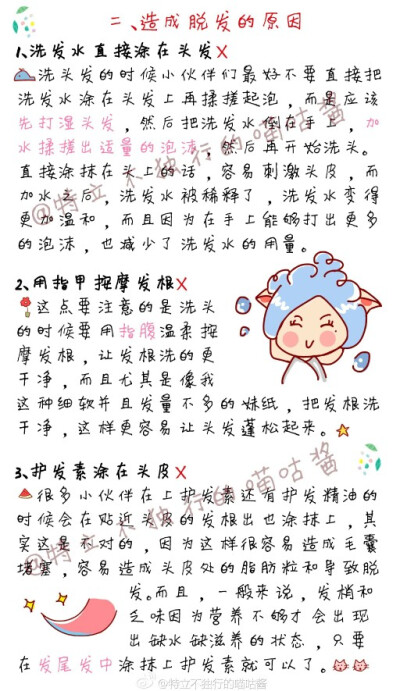 二、造成脱发的原因
1、洗发水直接涂在头发X
洗头发的时候小伙伴们最好不要直接把
洗发水涂在头发上再揉搓起泡，而是应该
先打湿头发，然后把洗发水倒在手上，加
水揉搓出适量的泡沫，然后再开始洗头。
直接涂抹在头上的话，容易刺激头皮，而
加水之后，洗发水被稀释了，洗发水变得
更加温和，而且因为在手上能够打出更多
的泡沫，也减少了洗发水的用量。
2、用指甲按摩发根X
这点要注意的是洗头
的时候要用指腹温柔按
摩发根，让发根洗的更
干净，而且尤其是像我
这种细软并且发量不多的妹纸，把发根洗
干净，这样更容易让头发蓬松起来。
3、护发素涂在头皮X
很多小伙伴在上护发素还有护发精油的
时候会在贴近头皮的发根出也涂抹上，其
实这是不对的，因为这样很容易造成毛囊
堵塞，容易造成头皮处的脂肪粒和导致脱
发。而且，一般来说，发梢和
乏味因为营养不够才会出现
出缺水缺滋养的状态，只要
在发尾发中涂抹上护发素就可以了。
@特立不独行的喵咕酱
@特立不独行的喵咕酱
@特立不独行的喵咕酱
@特立不独行的喵咕酱